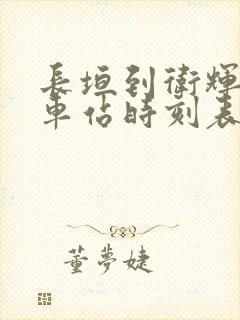 長垣到衛輝
車佔時刻表
董夢婕